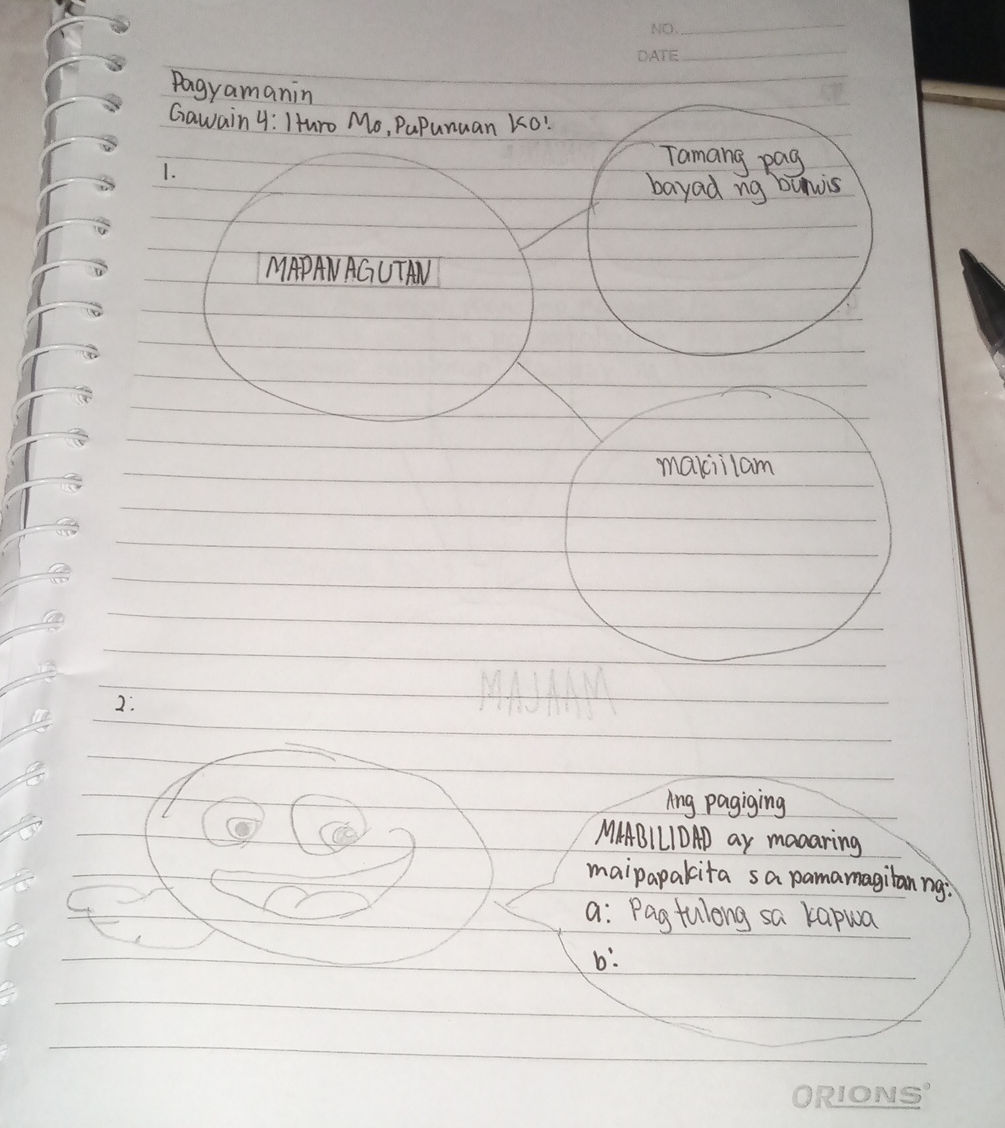 NO.
DATE
Pagyamanin
Gawain 4: Ituro Mo, PuPunuan Ko!
1.
Tamang pag
bayad ng buwis
MAPANAGUTAN
makiilam
MAALAM
2:
Ang pagiging
MAABILIDAD ay maaaring
maipapakita sa pamamagitan ng:
a: Pag tulong sa kapwa
b:
ORIONS